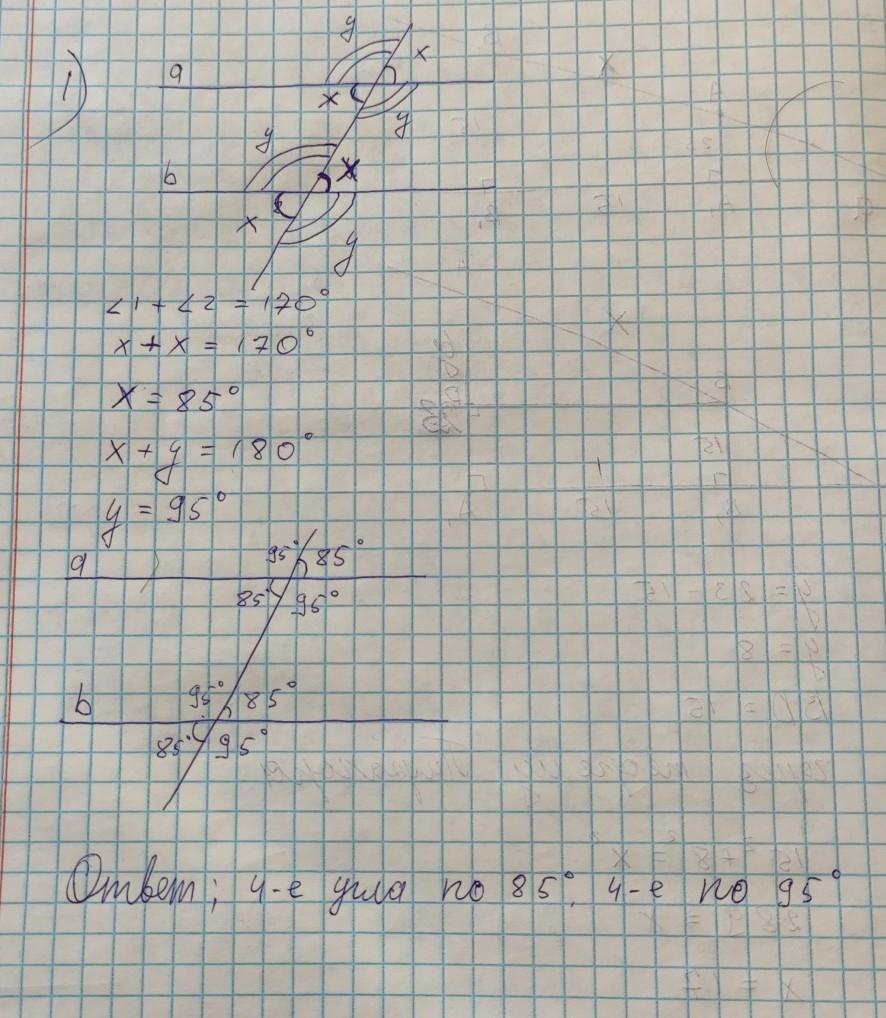 1)
y
x
a
x
y
y
x
b
x
y
∠1 + ∠2 = 170°
x + x = 170°
x = 85°
x + y = 180°
y = 95°
95° 85°
a
85° 95°
95° 85°
b
85° 95°
Ответ; 4-е угла по 85°, 4-е по 95°